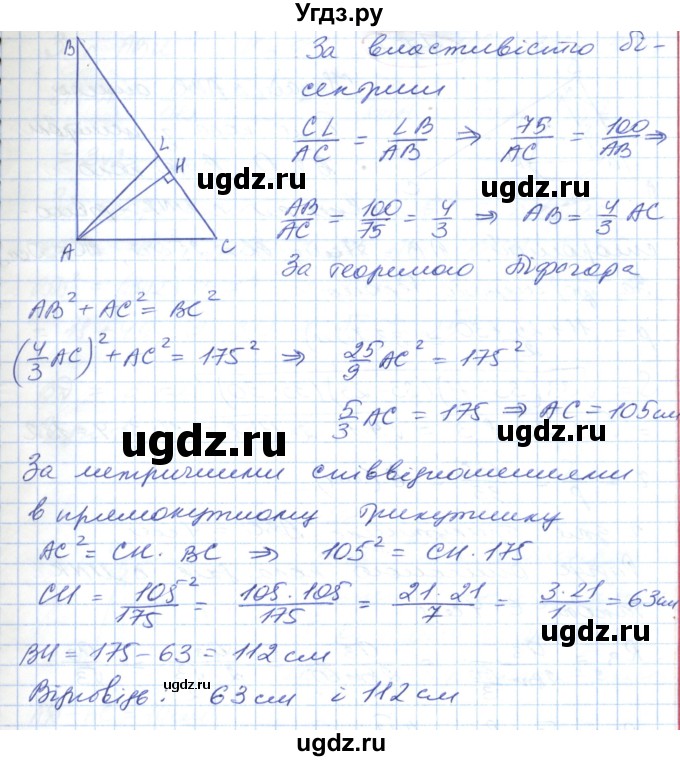 Угдз.ру
B
L
H
A
C
За властивістю бі-
сектриси
CL/AC = LB/AB ⇒ 75/AC = 100/AB ⇒
ugdz.ru ugdz.ru
AB/AC = 100/75 = 4/3 ⇒ AB = 4/3 AC
За теоремою Піфагора
AB² + AC² = BC²
(4/3 AC)² + AC² = 175² ⇒ 25/9 AC² = 175²
5/3 AC = 175 ⇒ AC = 105 см
ugdz.ru
ugdz.ru
За метричними співвідношеннями
в прямокутному трикутнику
AC² = CH · BC ⇒ 105² = CH · 175
CH = 105²/175 = 105·105/175 = 21·21/7 = 3·21/1 = 63 см.
ugdz.ru
BH = 175 − 63 = 112 см
ugdz.ru
Відповідь: 63 см і 112 см
ugdz.ru